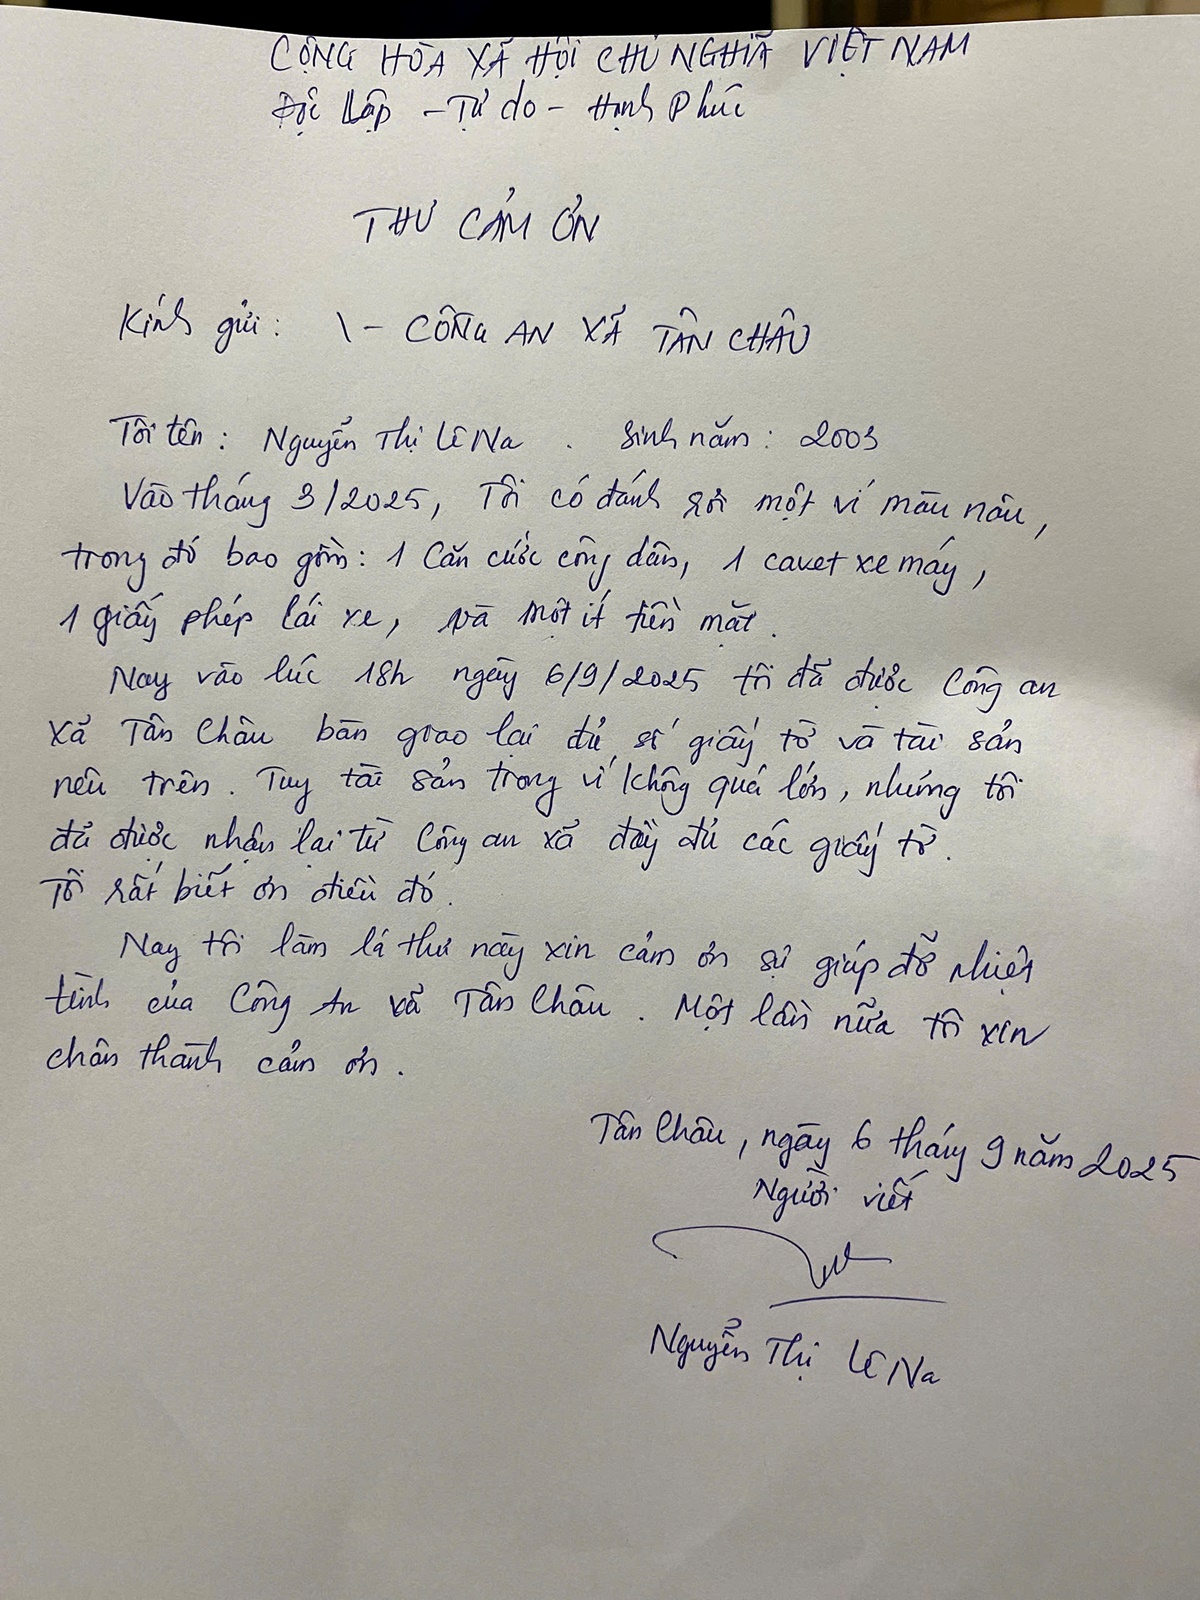 CỘNG HÒA XÃ HỘI CHỦ NGHĨA VIỆT NAM
Độc lập - Tự do - Hạnh Phúc
THƯ CẢM ƠN
Kính gửi: \- CÔNG AN XÃ TÂN CHÂU
Tôi tên: Nguyễn Thị Lê Na . Sinh năm: 2003
Vào tháng 3/2025, Tôi có đánh rơi một ví màu nâu,
trong đó bao gồm: 1 Căn cước công dân, 1 cavet xe máy,
1 giấy phép lái xe, và một ít tiền mặt.
Nay vào lúc 18h ngày 6/9/2025 tôi đã được Công an
xã Tân Châu bàn giao lại đủ số giấy tờ và tài sản
nêu trên. Tuy tài sản trong ví không quá lớn, nhưng tôi
đã được nhận lại từ Công an xã đầy đủ các giấy tờ.
Tôi rất biết ơn điều đó.
Nay tôi làm lá thư này xin cảm ơn sự giúp đỡ nhiệt
tình của Công An xã Tân Châu. Một lần nữa tôi xin
chân thành cảm ơn.
Tân Châu, ngày 6 tháng 9 năm 2025
Người viết
Nguyễn Thị Lê Na